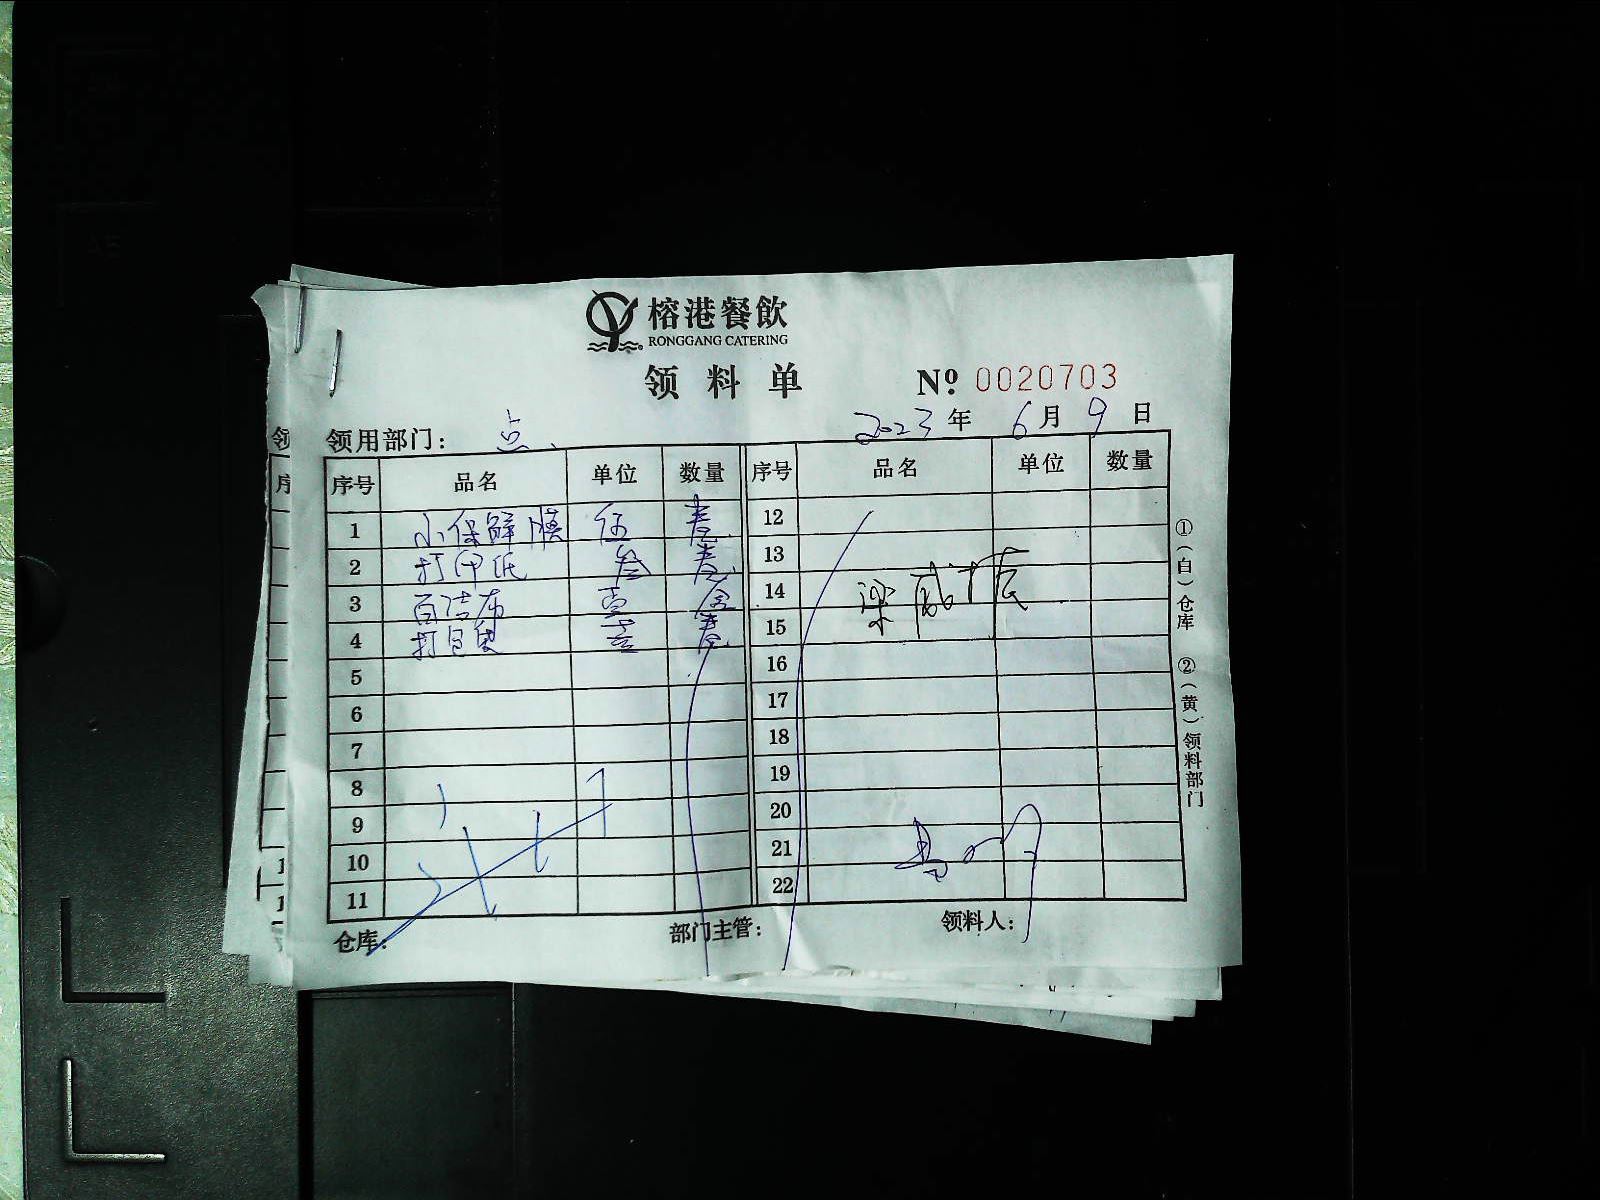 榕港餐飲
RONGGANG CATERING
领料单
Nº 0020703
领用部门： 点 2023年6月9日
序号 品名 单位 数量 序号 品名 单位 数量
1 小保鲜膜 伍 12
2 打印纸 叁 13
3 百洁布 壹 14
4 打包 15
5 16
6 17
7 18
8 19
9 20
10 21
11 22
仓库： 部门主管： 领料人：
①（白）仓库 ②（黄）领料部门